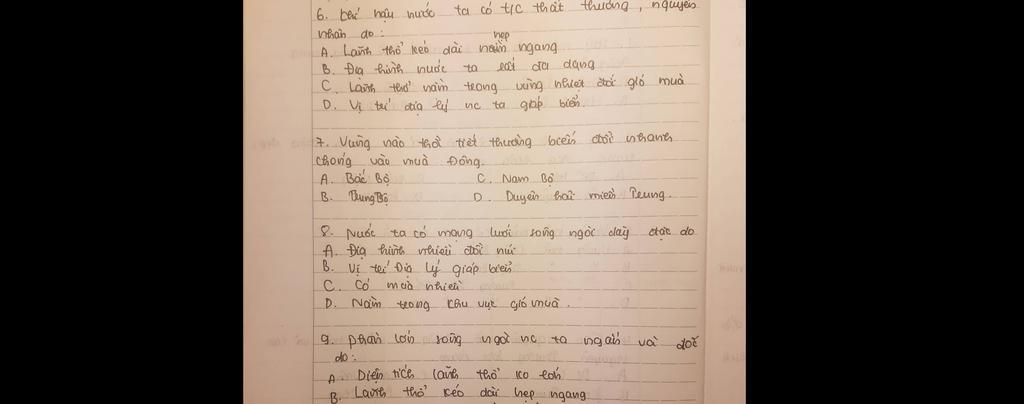 6. Khí hậu nước ta có t/c thất thường, nguyên
nhân do:
A. Lãnh thổ kéo dài hẹp ngang
B. Địa hình nước ta rất đa dạng
C. Lãnh thổ nằm trong vùng nhiệt đới gió mùa
D. Vị trí địa lý nc ta giáp biển.
7. Vùng nào thời tiết thường biến đổi nhanh
chóng vào mùa Đông.
A. Bắc Bộ C. Nam Bộ
B. Trung Bộ D. Duyên hải miền Trung.
8. Nước ta có mạng lưới sông ngòi dày đặc do
A. Địa hình nhiều đồi núi
B. Vị trí Địa lý giáp biển
C. Có mưa nhiều
D. Nằm trong khu vực gió mùa.
9. Phần lớn sông ngòi nc ta ngắn và dốc
do:
A. Diện tích lãnh thổ ko lớn
B. Lãnh thổ kéo dài hẹp ngang